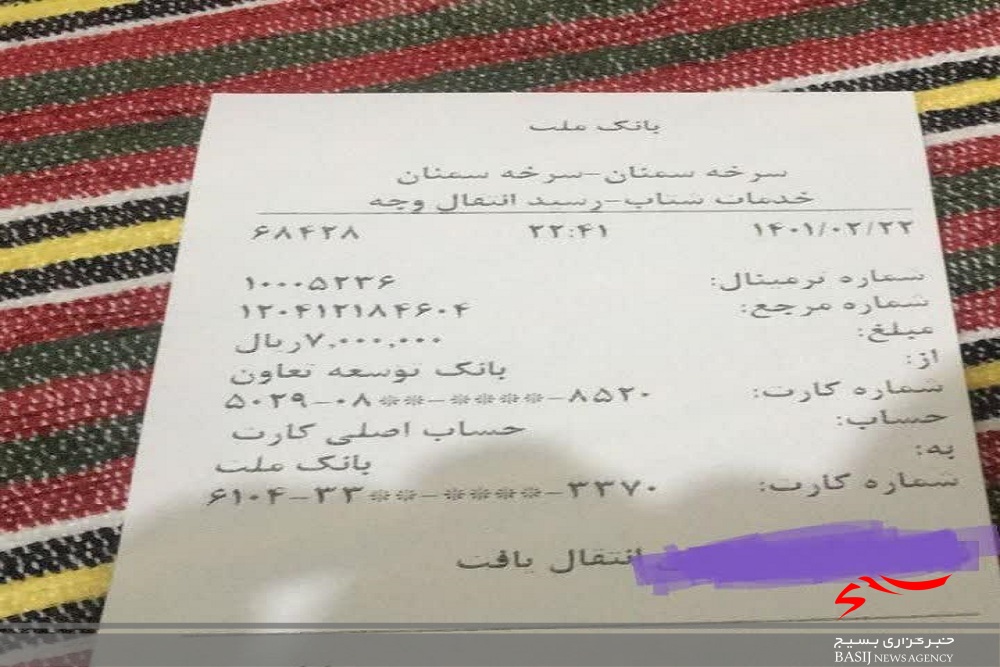 بانک ملت
سرخه سمنان-سرخه سمنان
خدمات شتاب-رسید انتقال وجه
۱۴۰۱/۰۲/۲۲ ۲۲:۴۱ ۶۸۴۲۸
شماره ترمینال: ۱۰۰۰۵۲۳۶
شماره مرجع: ۱۲۰۴۱۲۱۸۴۶۰۴
مبلغ: ۷,۰۰۰,۰۰۰ریال
از: بانک توسعه تعاون
شماره کارت: ۵۰۲۹-۰۸**-****-۸۵۲۰
حساب: حساب اصلی کارت
به: بانک ملت
شماره کارت: ۶۱۰۴-۳۳**-****-۳۳۷۰
انتقال یافت
خبرگزاری بسیج
BASIJ NEWS AGENCY